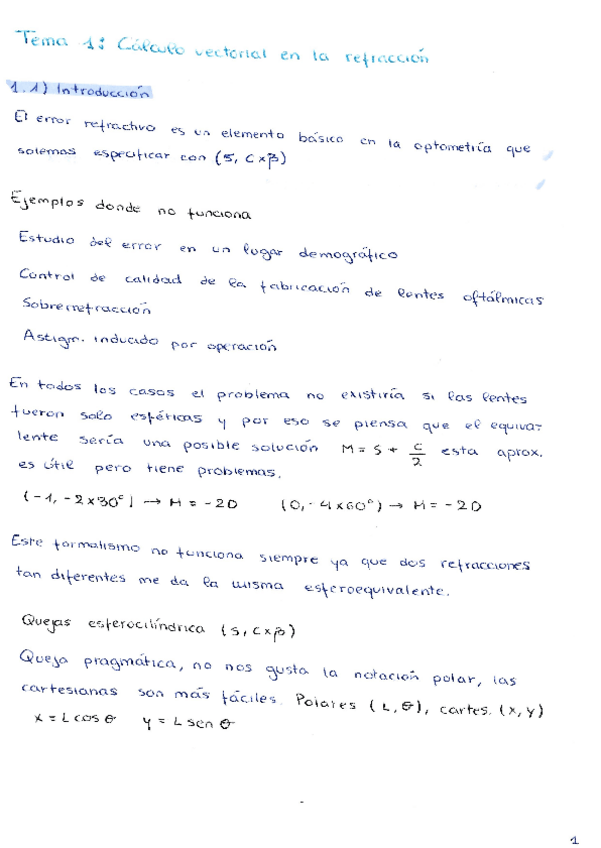 Tema 1: Cálculo vectorial en la refracción
1.1) Introducción
El error refractivo es un elemento básico en la optometría que
solemos especificar con (S, C x β)
Ejemplos donde no funciona
Estudio del error en un lugar demográfico
Control de calidad de la fabricación de lentes oftálmicas
Sobrerrefracción
Astigm. inducido por operación
En todos los casos el problema no existiría si las lentes
fueron solo esféricas y por eso se piensa que el equiva-
lente sería una posible solución M = S + C/2 esta aprox.
es útil pero tiene problemas.
(-1, -2x30°) → M = -2D (0, -4x60°) → M = -2D
Este formalismo no funciona siempre ya que dos refracciones
tan diferentes me da la misma esferoequivalente.
Quejas esferocilíndrica (S, C x β)
Queja pragmática, no nos gusta la notación polar, las
cartesianas son más fáciles. Polares (L, θ), cartes. (x, y)
x = L cos θ y = L sen θ
1